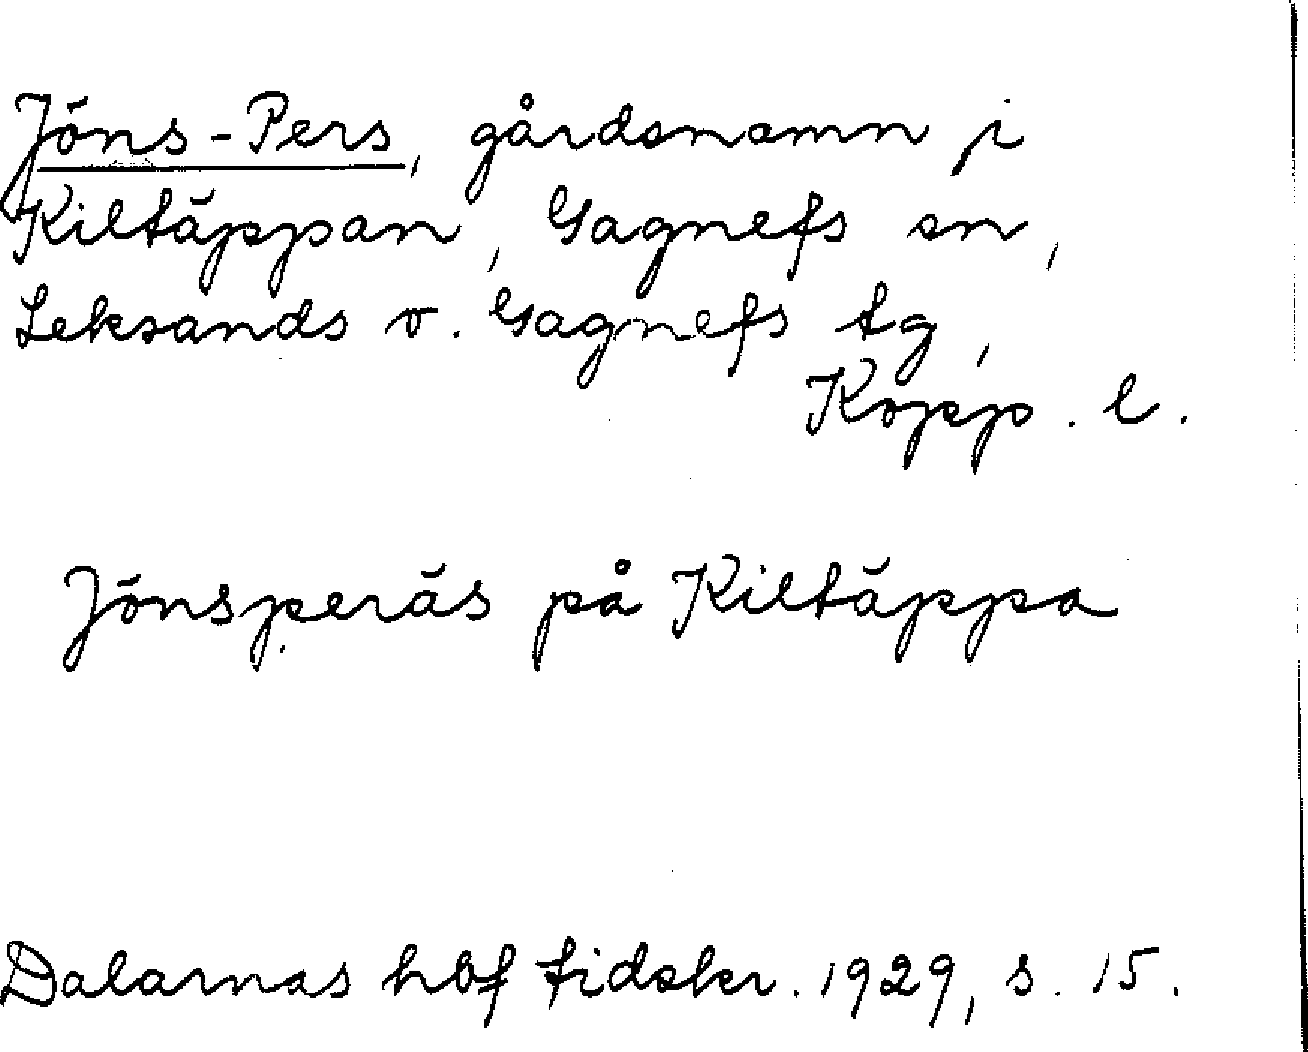 Jöns-Pers, gårdsnamn i
Kiltäppan, Gagnefs sn,
Leksands o. Gagnefs tg,
Kopp. l.
Jönsperäs på Kiltäppa
Dalarnas hbf tidskr. 1929, s. 15.